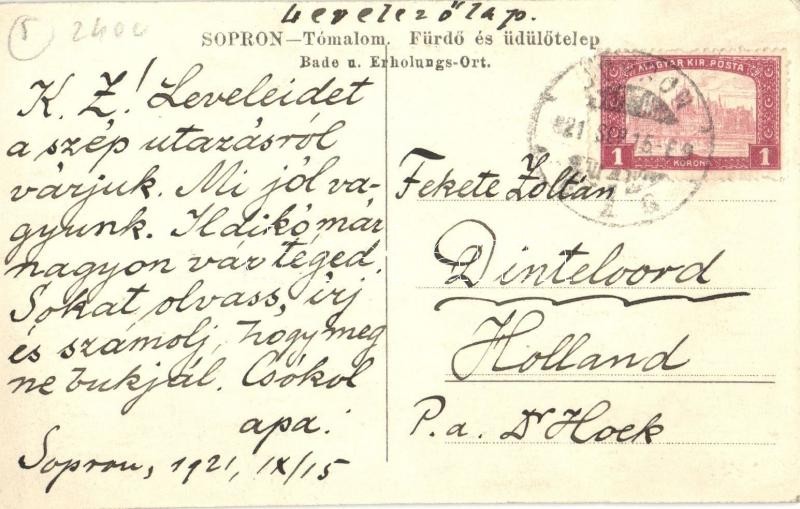 5 2400
Levelezőlap.
SOPRON—Tómalom. Fürdő és üdülőtelep
Bade u. Erholungs-Ort.
K. Z! Leveleidet
a szép utazásról
várjuk. Mi jól va-
gyunk. Ildikó már
nagyon vár téged.
Sokat olvass, írj
és számolj, hogy meg
ne bukjál. Csókol
apa.
Sopron, 1921, IX/15
MAGYAR KIR. POSTA
1 KORONA 1
Fekete Zoltán
Dinteloord
Holland
P. a. Dr Hoek